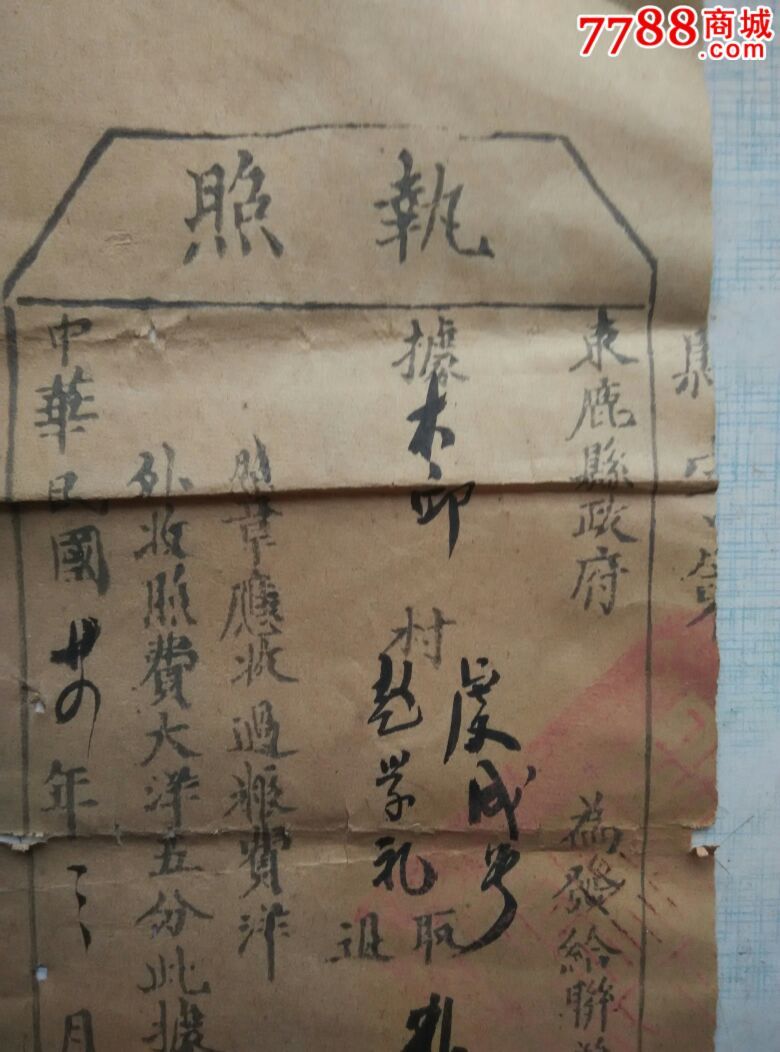 7788商城
.com
執照
縣
束鹿縣政府
為發給聯
據木邱村
慶成号
趙学礼
取
退
照章應收過粮費洋
外收照費大洋五分此據
中華民國廿四年三月